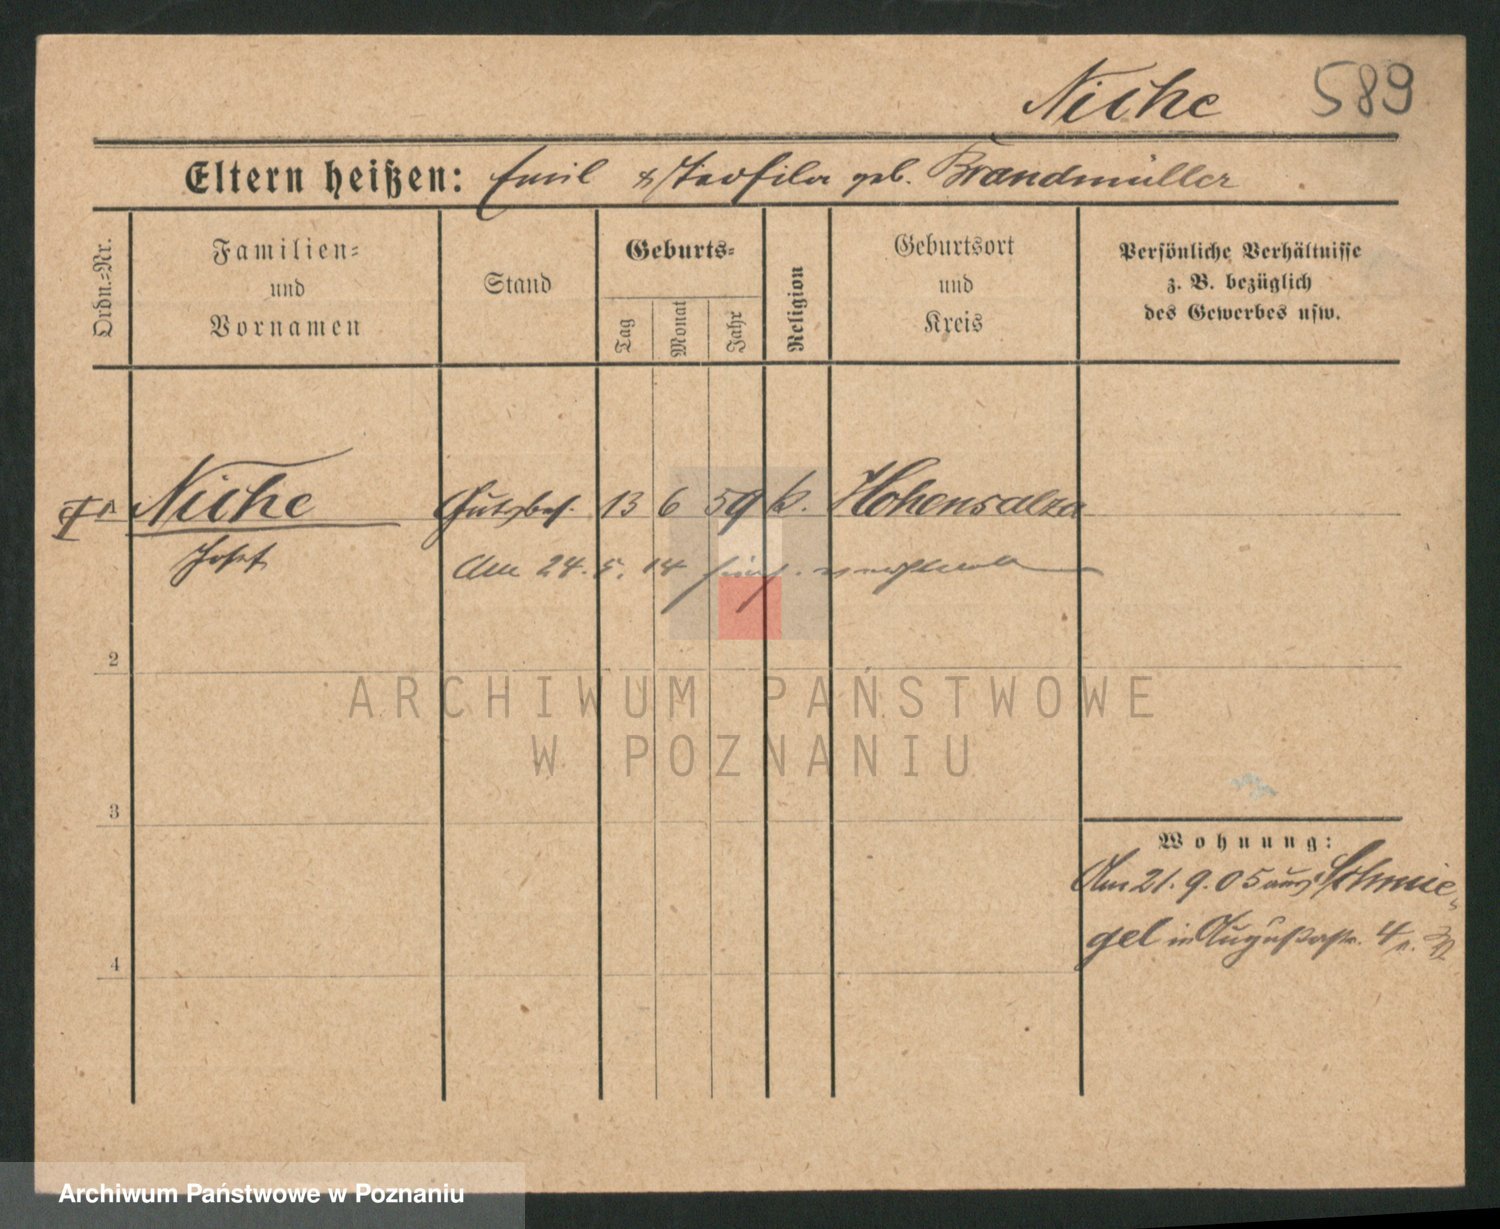 Niche 589
Eltern heißen: Emil & Teofila geb. Brandmüller
Ordn.-Nr.
Familien-
und
Vornamen
Stand
Geburts-
Tag
Monat
Jahr
Religion
Geburtsort
und
Kreis
Persönliche Verhältnisse
z. B. bezüglich
des Gewerbes usw.
Niche Gutsbes. 13 6 59 k. Hohensalza
Josef
Am 24. 5. 14 hier
2
3
4
Wohnung:
Am 21. 9. 05 aus Schmie-
gel in Augustastr. 4
ARCHIWUM PAŃSTWOWE
W POZNANIU
Archiwum Państwowe w Poznaniu